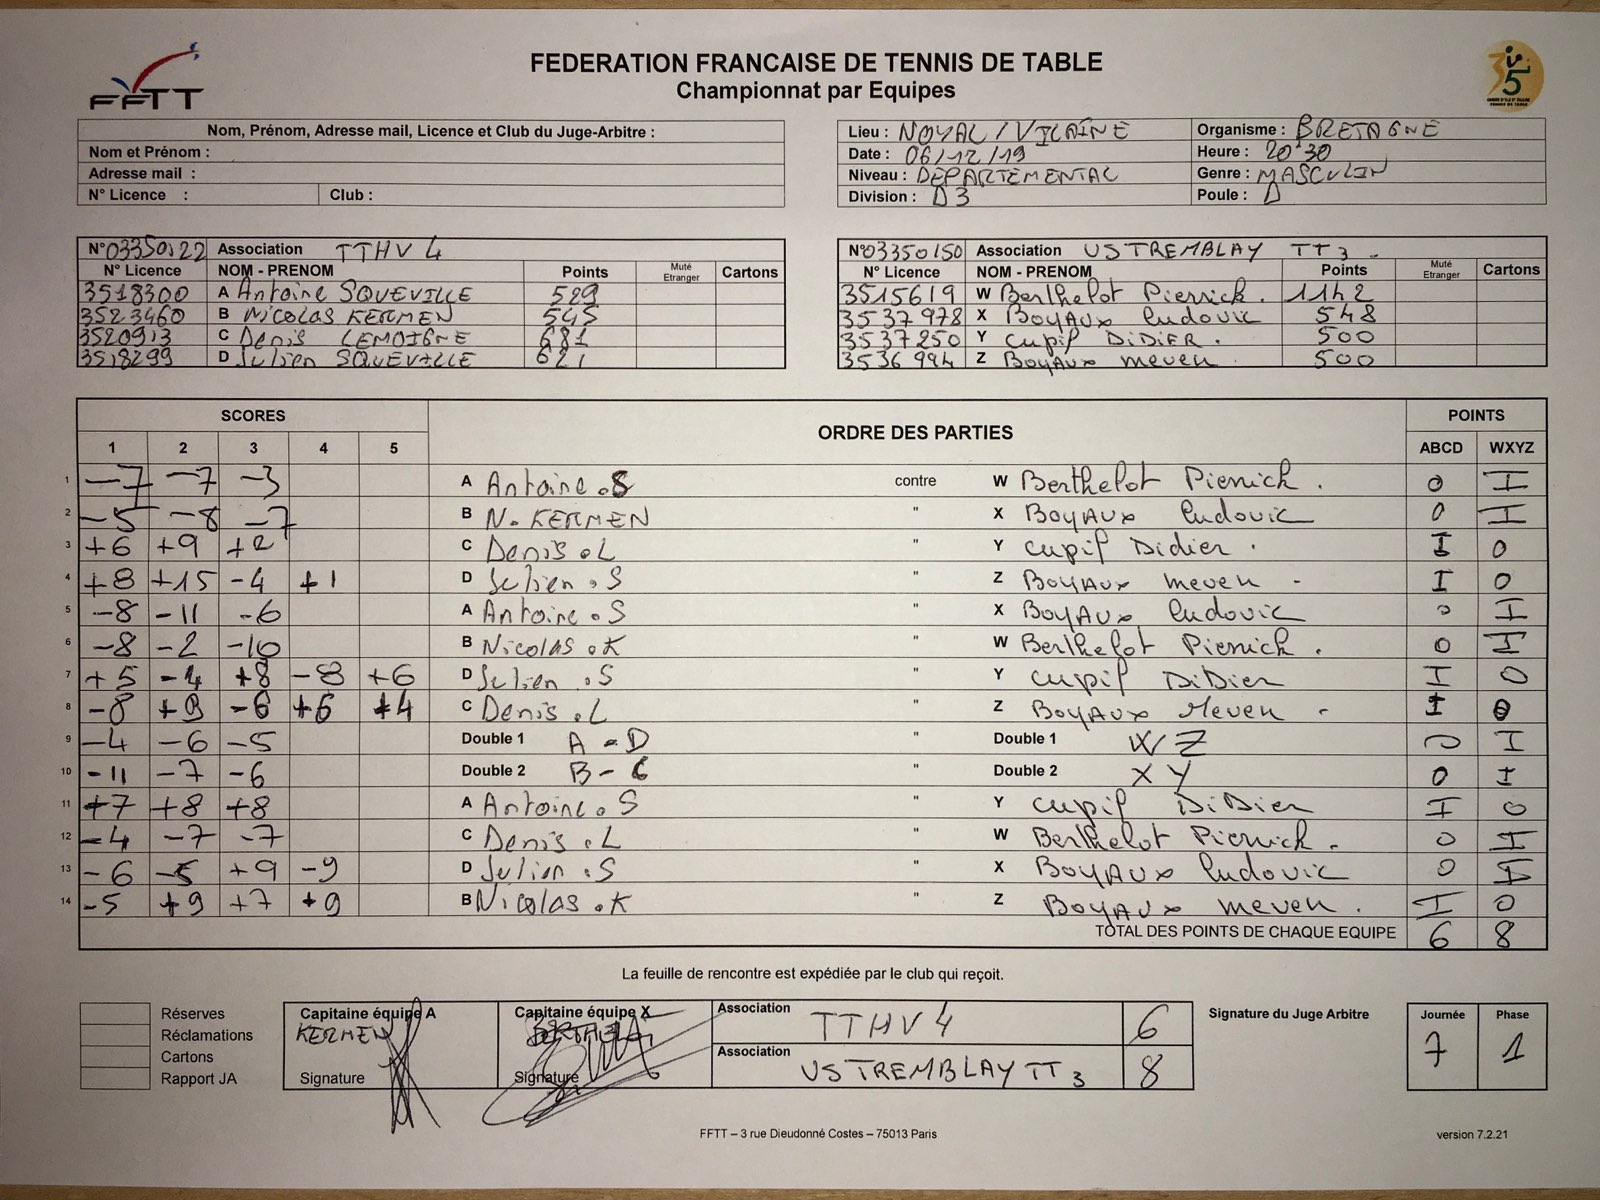 FEDERATION FRANCAISE DE TENNIS DE TABLE
Championnat par Equipes
FFTT
35
Nom, Prénom, Adresse mail, Licence et Club du Juge-Arbitre :
Nom et Prénom :
Adresse mail :
N° Licence : Club :
Lieu : NOYAL/VILAINE Organisme : BRETAGNE
Date : 06/12/19 Heure : 20°30
Niveau : DEPARTEMENTAL Genre : MASCULIN
Division : D3 Poule : D
N°03350122 Association TTHV 4
N° Licence NOM - PRENOM Points Muté Etranger Cartons
3518300 A Antoine SQUEVILLE 529
3523460 B Nicolas KERMEN 545
3520913 C Denis LEMOIGNE 681
3518299 D Julien SQUEVILLE 621
N°03350150 Association US TREMBLAY TT 3
N° Licence NOM - PRENOM Points Muté Etranger Cartons
3515619 W Berthelot Pierrick. 1142
3537978 X BoyAux ludovic 548
3537250 Y Cupif DiDiER. 500
3536994 Z BoyAux meven 500
SCORES ORDRE DES PARTIES POINTS
1 2 3 4 5 ABCD WXYZ
1 -7 -7 -3 A Antoine.S contre W Berthelot Pierrick. 0 I
2 -5 -8 -7 B N. KERMEN " X BoyAux ludovic 0 I
3 +6 +9 +2 C Denis.L " Y Cupif Didier. I 0
4 +8 +15 -4 +1 D Julien.S " Z BoyAux meven - I 0
5 -8 -11 -6 A Antoine.S " X BoyAux ludovic 0 I
6 -8 -2 -10 B Nicolas.K " W Berthelot Pierrick. 0 I
7 +5 -4 +8 -8 +6 D Julien.S " Y Cupif DiDier I 0
8 -8 +9 -6 +6 +4 C Denis.L " Z BoyAux Meven - I 0
9 -4 -6 -5 Double 1 A-D " Double 1 WZ 0 I
10 -11 -7 -6 Double 2 B-C " Double 2 XY 0 I
11 +7 +8 +8 A Antoine.S " Y Cupif DiDier I 0
12 -4 -7 -7 C Denis.L " W Berthelot Pierrick. 0 I
13 -6 -5 +9 -9 D Julien.S " X BoyAux ludovic 0 I
14 -5 +9 +7 +9 B Nicolas.K " Z BoyAux meven. I 0
TOTAL DES POINTS DE CHAQUE EQUIPE 6 8
La feuille de rencontre est expédiée par le club qui reçoit.
Réserves
Réclamations
Cartons
Rapport JA
Capitaine équipe A
KERMEN
Signature
Capitaine équipe X
Signature
Association TTHV 4 6
Association US TREMBLAY TT 3 8
Signature du Juge Arbitre
Journée Phase
7 1
FFTT – 3 rue Dieudonné Costes – 75013 Paris
version 7.2.21